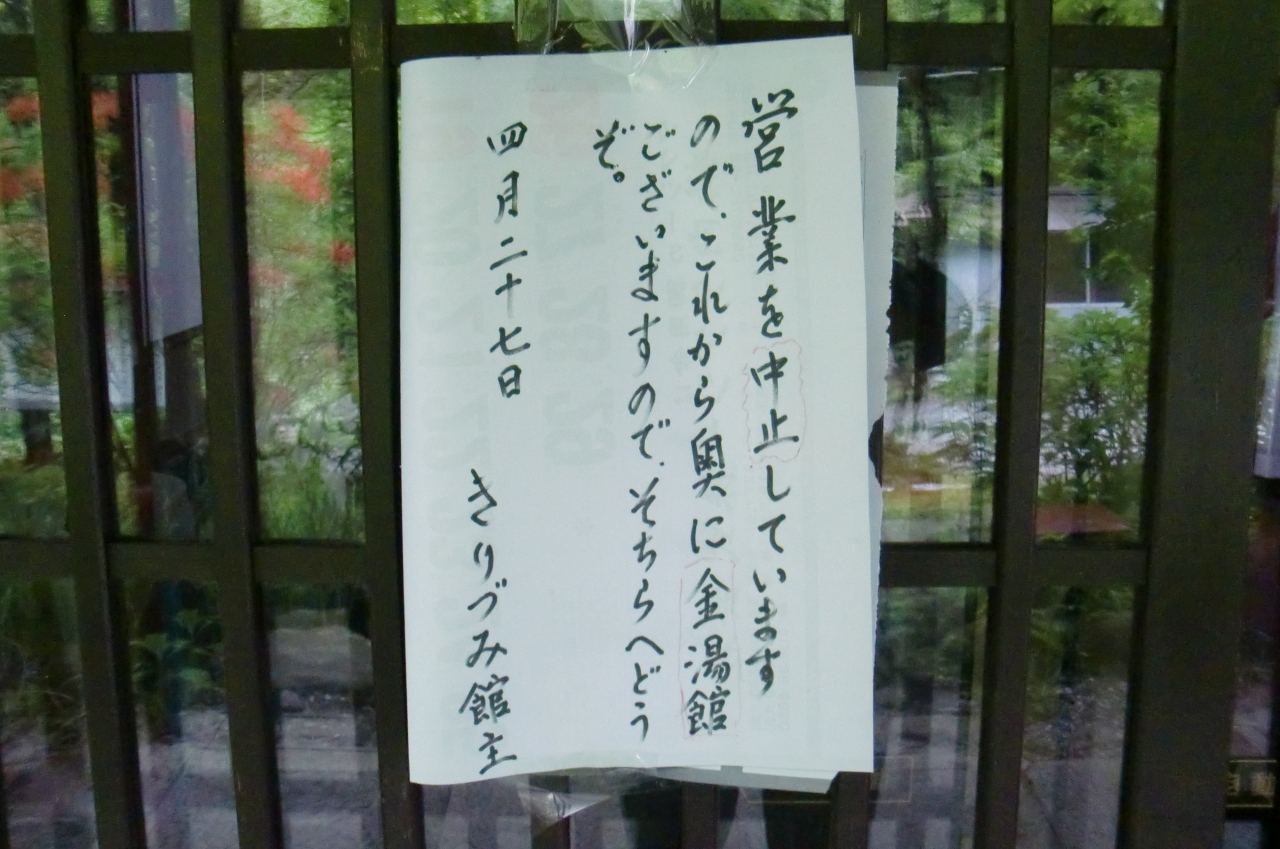 営業を中止しています
ので、これから奥に金湯館
ございますので、そちらへどう
ぞ。
四月二十七日
きりづみ館主